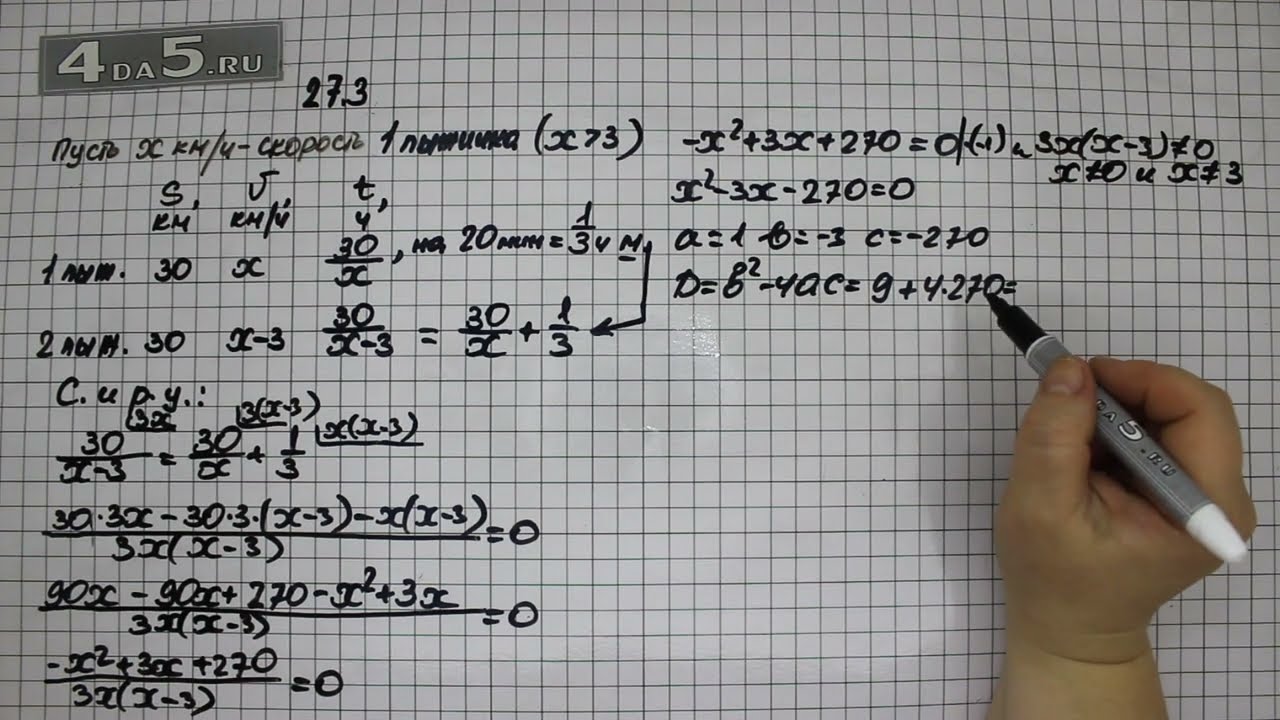 4DA5.RU
27.3
Пусть x км/ч - скорость 1 пытишка (x>3)
S, км
V, км/ч
t, ч
1 пыт. 30 x 30/x, на 20 мин = 1/3 ч м.
2 пыт. 30 x-3 30/(x-3) = 30/x + 1/3
С. и р. у.:
30/(x-3) = 30/x + 1/3
3x 3(x-3) x(x-3)
(30·3x - 30·3·(x-3) - x(x-3))/(3x(x-3)) = 0
(90x - 90x + 270 - x² + 3x)/(3x(x-3)) = 0
(-x² + 3x + 270)/(3x(x-3)) = 0
-x² + 3x + 270 = 0 |·(-1) и 3x(x-3) ≠ 0
x ≠ 0 и x ≠ 3
x² - 3x - 270 = 0
a = 1 b = -3 c = -270
D = b² - 4ac = 9 + 4·270 =
DA5.RU